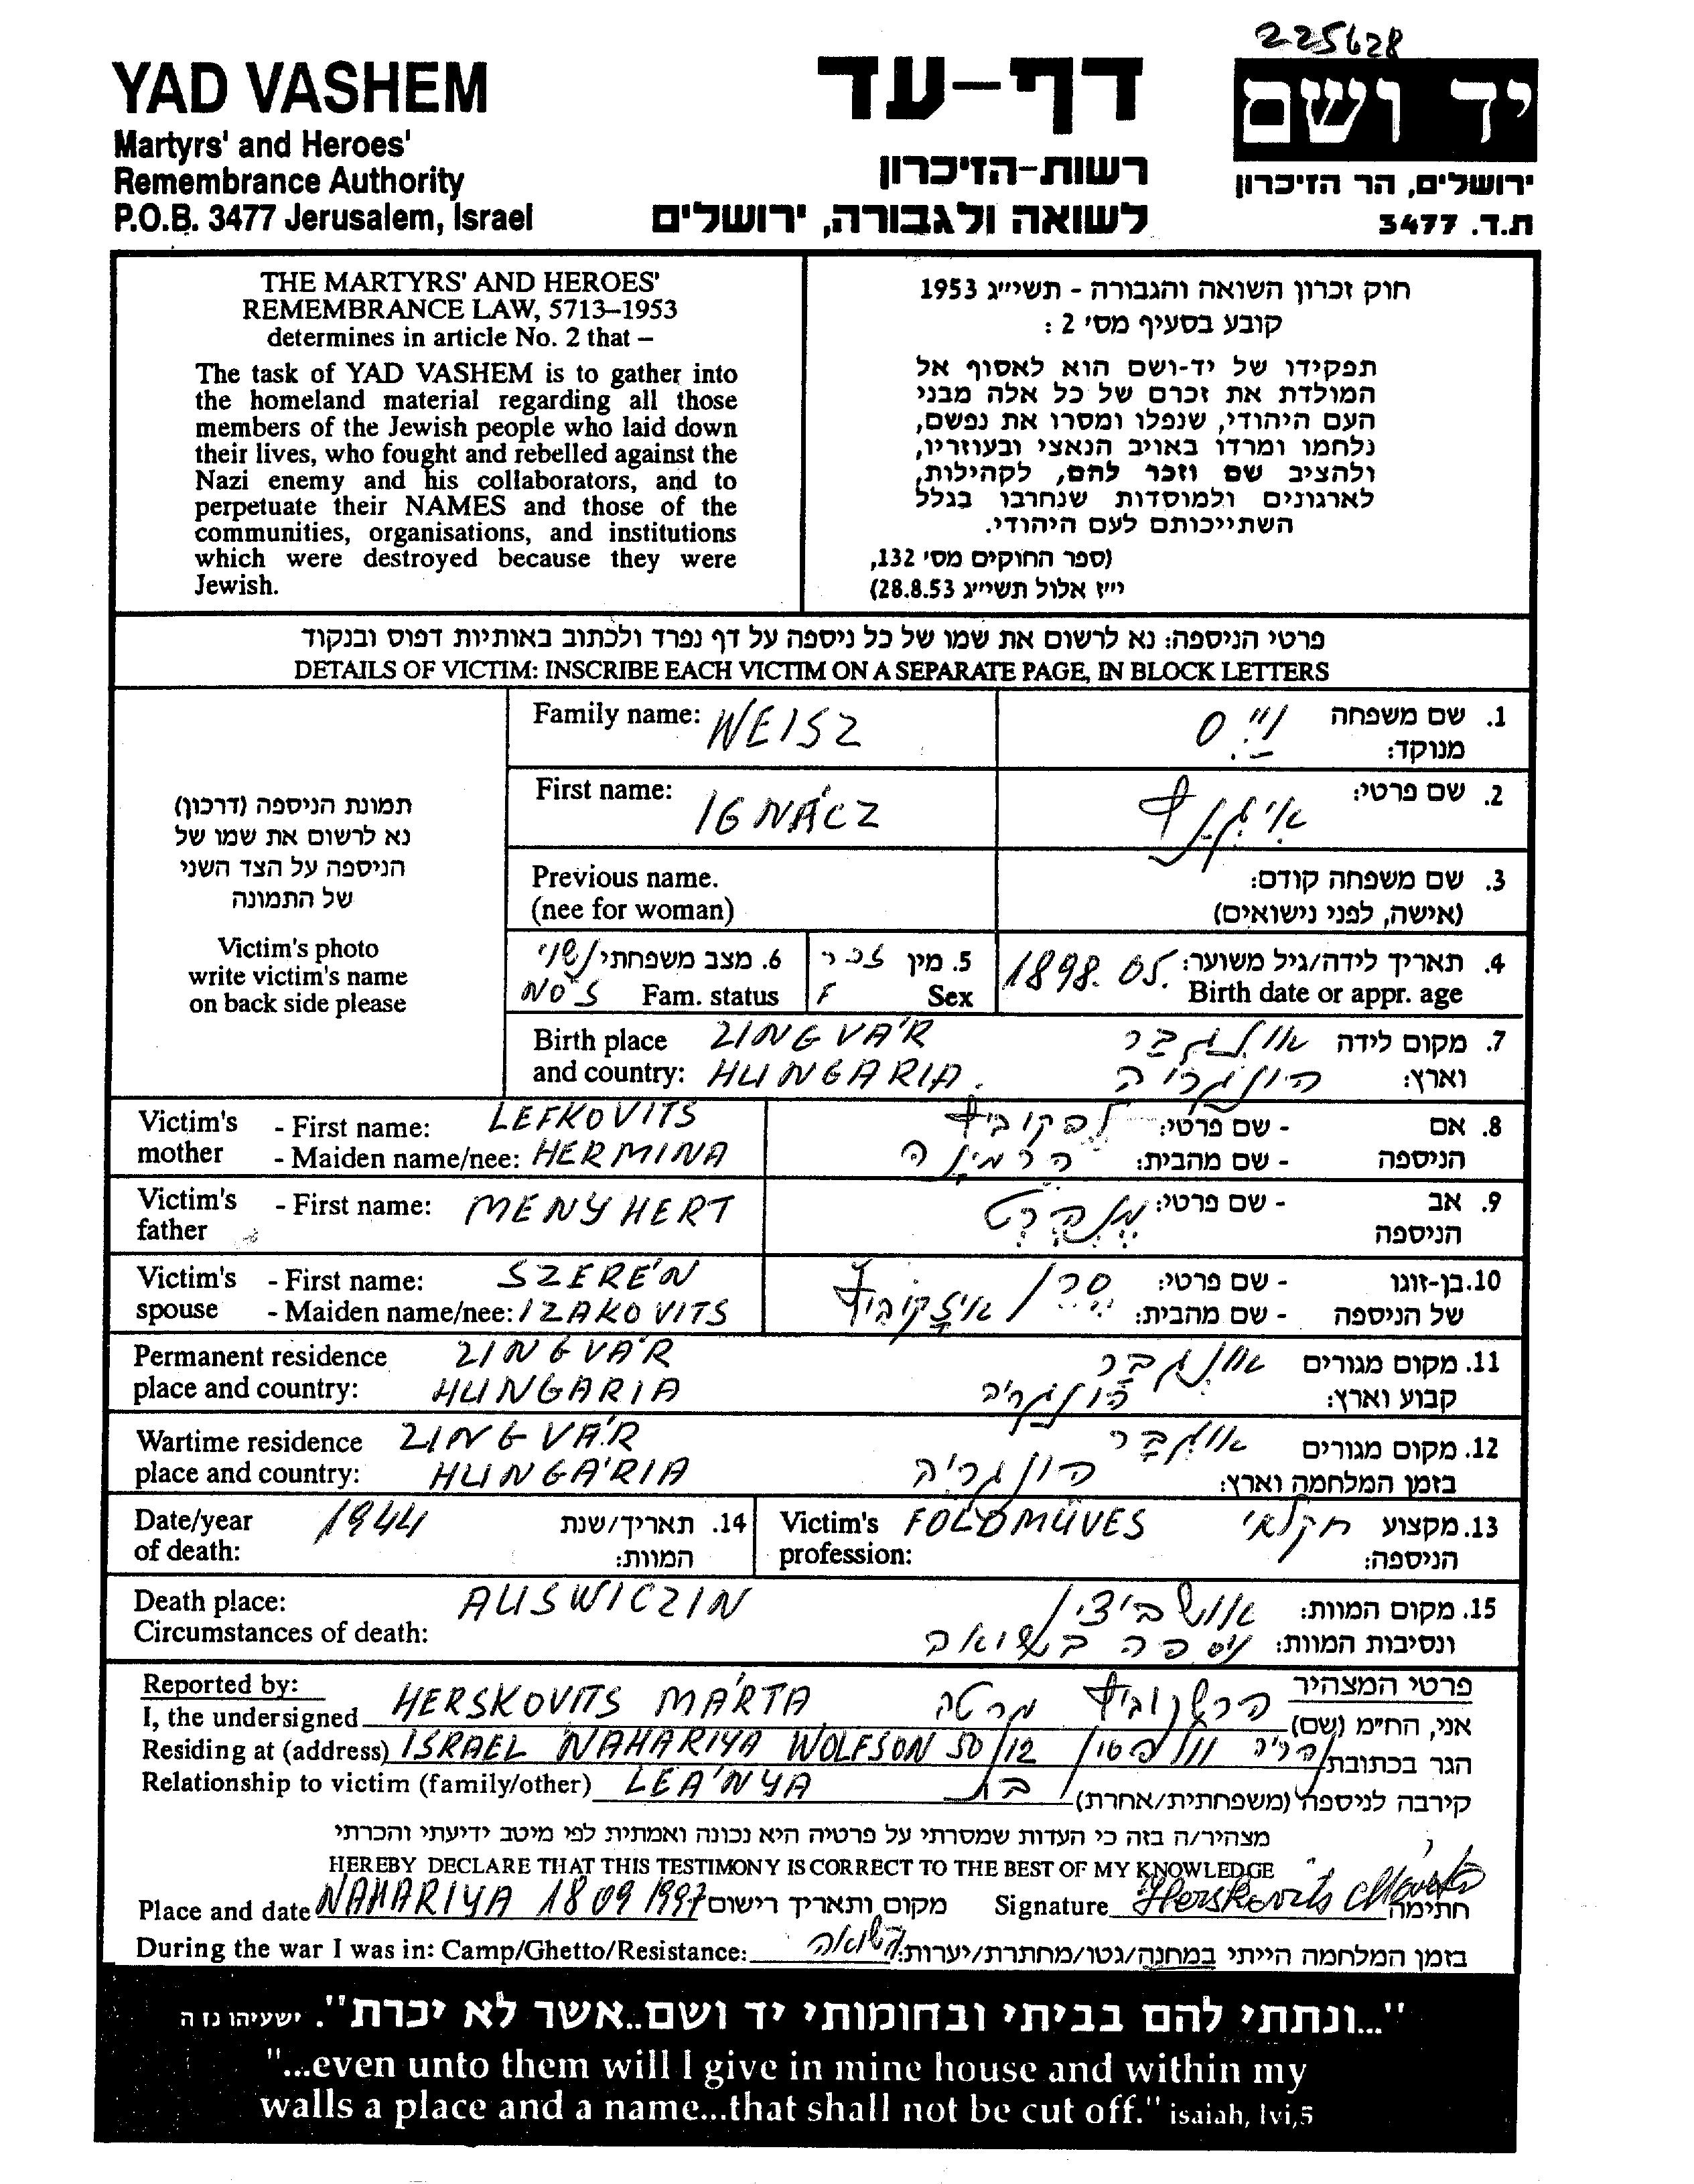 225628
YAD VASHEM
Martyrs' and Heroes'
Remembrance Authority
P.O.B. 3477 Jerusalem, Israel
דף-עד
רשות-הזיכרון
לשואה ולגבורה, ירושלים
יד ושם
ירושלים, הר הזיכרון
ת.ד. 3477
THE MARTYRS' AND HEROES'
REMEMBRANCE LAW, 5713–1953
determines in article No. 2 that –
The task of YAD VASHEM is to gather into
the homeland material regarding all those
members of the Jewish people who laid down
their lives, who fought and rebelled against the
Nazi enemy and his collaborators, and to
perpetuate their NAMES and those of the
communities, organisations, and institutions
which were destroyed because they were
Jewish.
חוק זכרון השואה והגבורה - תשי״ג 1953
קובע בסעיף מס׳ 2 :
תפקידו של יד-ושם הוא לאסוף אל
המולדת את זכרם של כל אלה מבני
העם היהודי, שנפלו ומסרו את נפשם,
נלחמו ומרדו באויב הנאצי ובעוזריו,
ולהציב שם וזכר להם, לקהילות,
לארגונים ולמוסדות שנחרבו בגלל
השתייכותם לעם היהודי.
(ספר החוקים מס׳ 132,
י״ז אלול תשי״ג 28.8.53)
פרטי הניספה: נא לרשום את שמו של כל ניספה על דף נפרד ולכתוב באותיות דפוס ובנקוד
DETAILS OF VICTIM: INSCRIBE EACH VICTIM ON A SEPARATE PAGE, IN BLOCK LETTERS
תמונת הניספה (דרכון)
נא לרשום את שמו של
הניספה על הצד השני
של התמונה
Victim's photo
write victim's name
on back side please
Family name: WEISZ
1. שם משפחה וייס
מנוקד:
First name: IGNÁCZ
2. שם פרטי: איגנץ
Previous name.
(nee for woman)
3. שם משפחה קודם:
(אישה, לפני נישואים)
6. מצב משפחתי נשוי
NŐS Fam. status
5. מין זכר
F Sex
4. תאריך לידה/גיל משוער: 1898. 05.
Birth date or appr. age
Birth place UNGVÁR
and country: HUNGARIA.
7. מקום לידה אונגבר
וארץ: הונגריה
Victim's - First name: LEFKOVITS
mother - Maiden name/nee: HERMINA
8. אם - שם פרטי: לפקוביץ
הניספה - שם מהבית: הרמינה
Victim's - First name: MENYHERT
father
9. אב - שם פרטי: מנהרט
הניספה
Victim's - First name: SZERÉN
spouse - Maiden name/nee: IZAKOVITS
10. בן-זוגו - שם פרטי: סרן
של הניספה - שם מהבית: איזקוביץ
Permanent residence UNGVÁR
place and country: HUNGARIA
11. מקום מגורים אונגבר
קבוע וארץ: הונגריה
Wartime residence UNGVÁR
place and country: HUNGÁRIA
12. מקום מגורים אונגבר
בזמן המלחמה וארץ: הונגריה
Date/year 1944 14. תאריך/שנת
of death: המוות:
Victim's FÖLDMÜVES 13. מקצוע חקלאי
profession: הניספה:
Death place: AUSWICZIN
Circumstances of death:
15. מקום המוות: אושביצין
ונסיבות המוות: נספה בשואה
Reported by: פרטי המצהיר
I, the undersigned HERSKOVITS MÁRTA הרשקוביץ מרטה אני, הח״מ (שם)
Residing at (address) ISRAEL NAHARIYA WOLFSON 50/12 נהריה וולפסון הגר בכתובת
Relationship to victim (family/other) LEÁNYA בת קירבה לניספה (משפחתית/אחרת)
מצהיר/ה בזה כי העדות שמסרתי על פרטיה היא נכונה ואמתית לפי מיטב ידיעתי והכרתי
HEREBY DECLARE THAT THIS TESTIMONY IS CORRECT TO THE BEST OF MY KNOWLEDGE
Place and date NAHARIYA 18 09 1997 מקום ותאריך רישום Signature Herskovits Márta חתימה
During the war I was in: Camp/Ghetto/Resistance: בזמן המלחמה הייתי במחנה/גטו/מחתרת/יערות:
"...ונתתי להם בביתי ובחומותי יד ושם..אשר לא יכרת". ישעיהו נז ה
"...even unto them will I give in mine house and within my
walls a place and a name...that shall not be cut off." isaiah, lvi,5